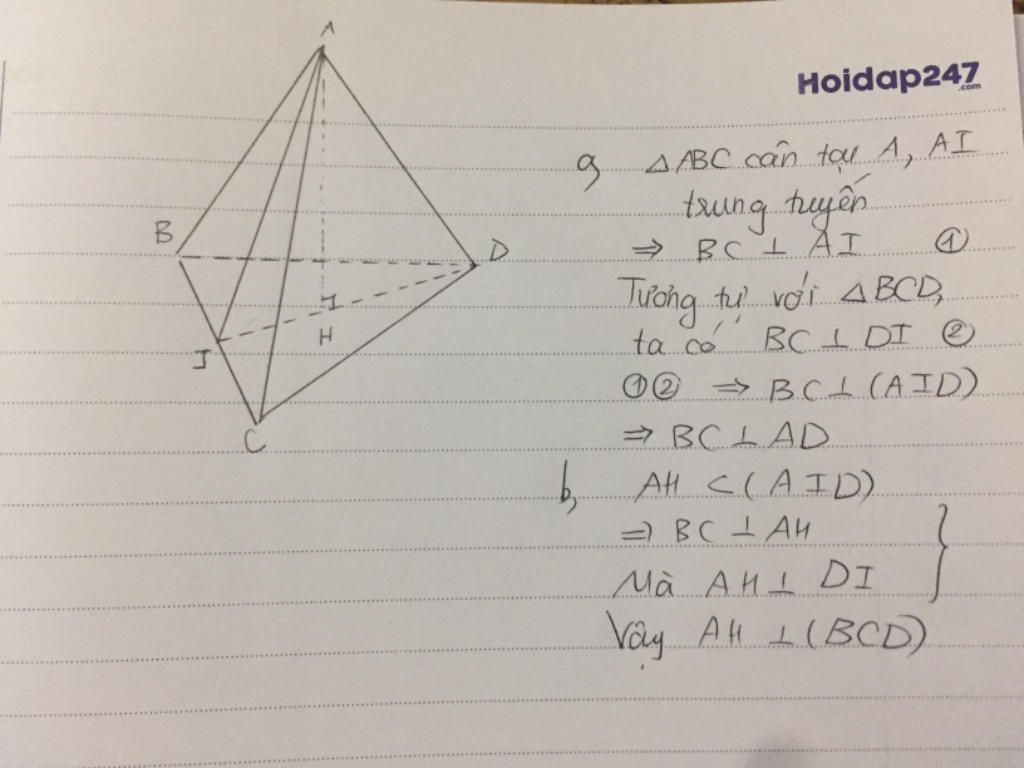 A
Hoidap247
.com
B
D
H
I
C
a, △ABC cân tại A, AI
trung tuyến
⇒ BC ⊥ AI ①
Tương tự với △BCD,
ta có BC ⊥ DI ②
①② ⇒ BC ⊥ (AID)
⇒ BC ⊥ AD
b, AH ⊂ (AID)
⇒ BC ⊥ AH
Mà AH ⊥ DI
Vậy AH ⊥ (BCD)